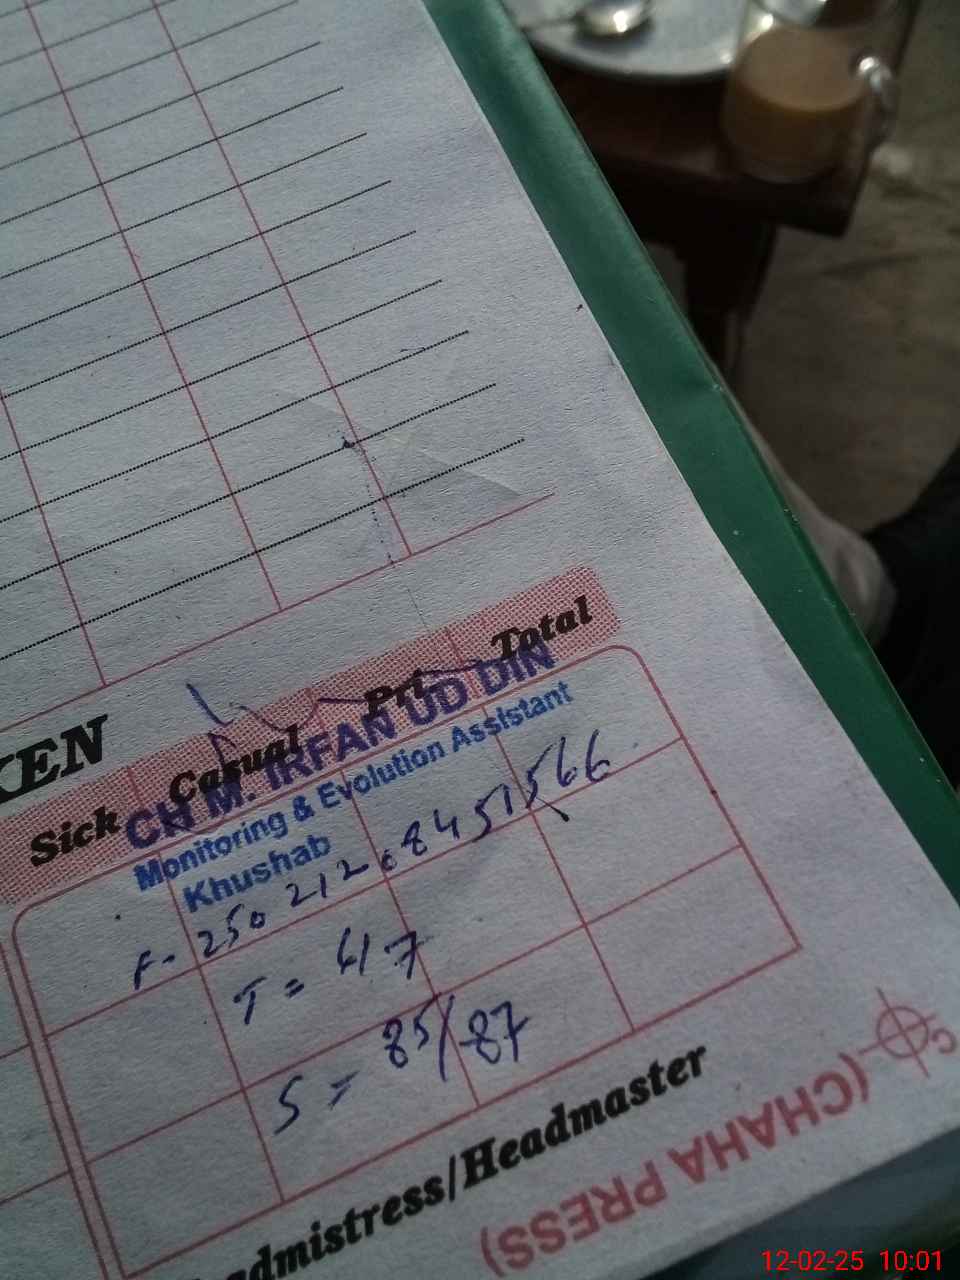 KEN
Sick Casual Pri Total
CH M. IRFAN UD DIN
Monitoring & Evolution Assistant
Khushab
F- 25021208451566
T = 47
S = 85/87
admistress/Headmaster
(CHAHA PRESS)
12-02-25 10:01